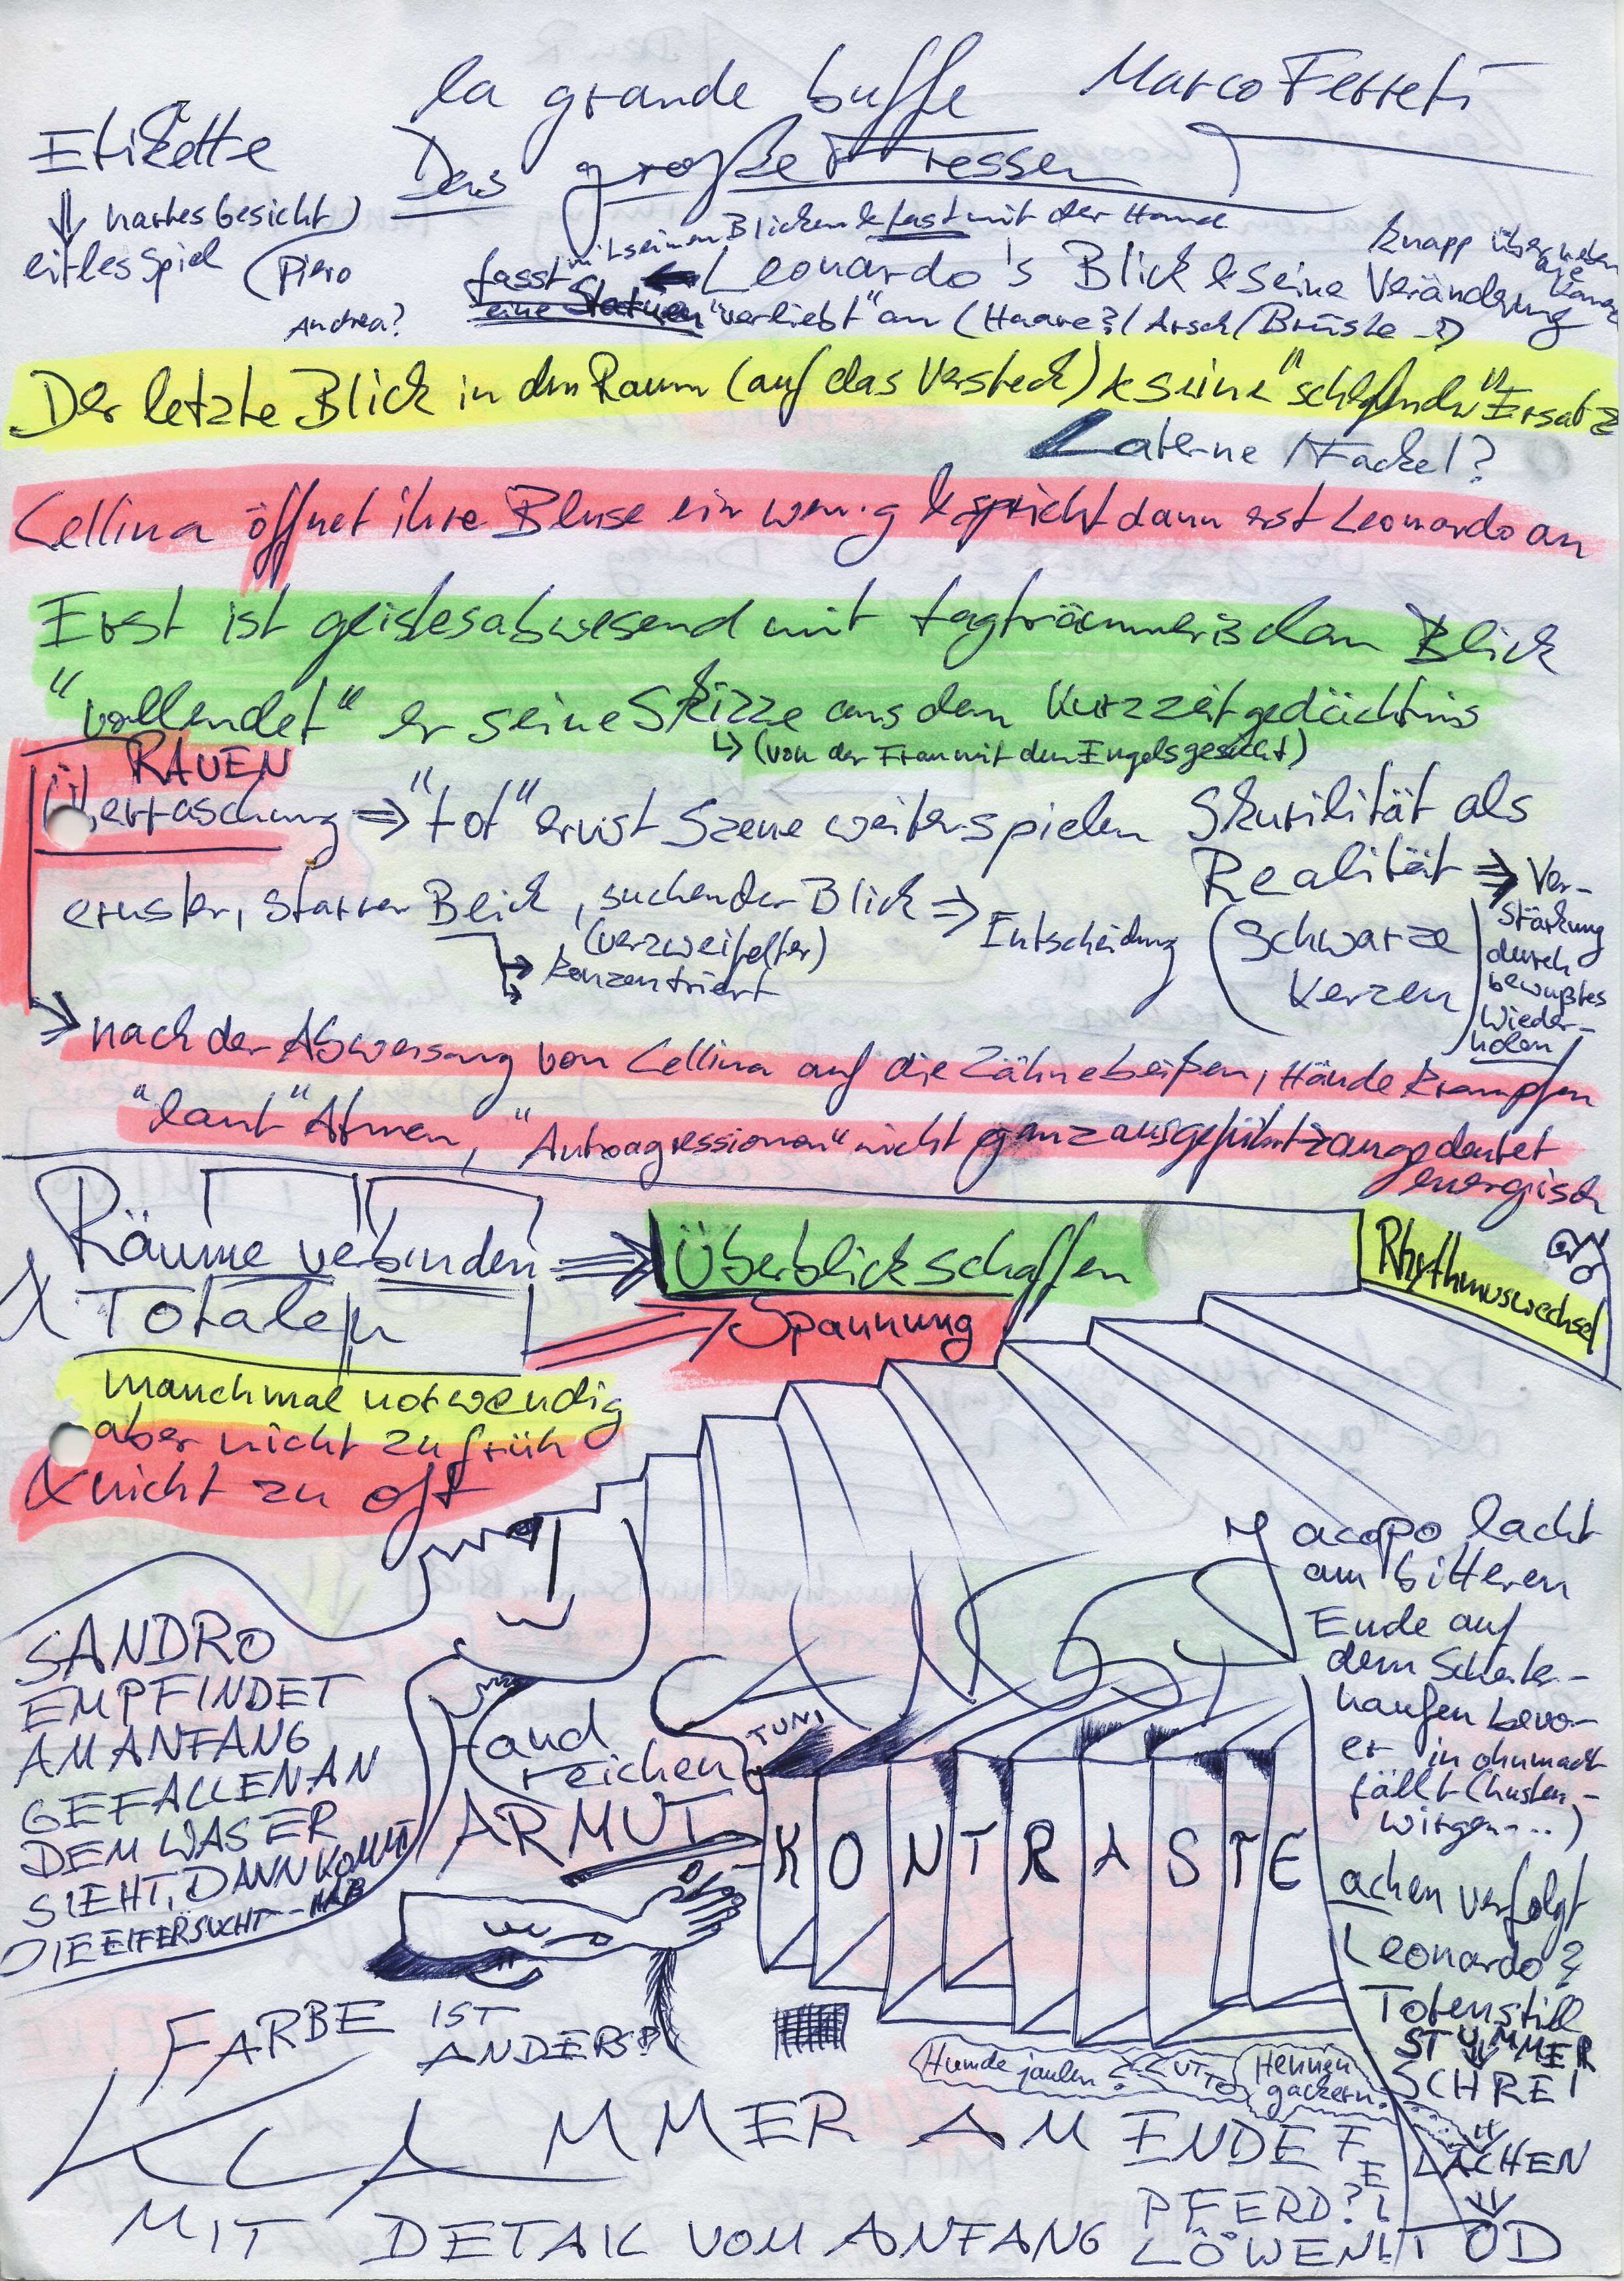 la grande buffe Marco Ferreti
Das große Fressen
Etikette
hartes Gesicht)
eitles Spiel
(Piero
Andrea?
mit seinen Blicken & fast mit der Hand
fasst
eine Statuen
Leonardo's Blick & seine Veränderung
"verliebt" an (Haare?/Arsch/Brüste
knapp über
Der letzte Blick in den Raum (auf das Versteck) & seine "schlafenden" Ersatz
Laterne / Fackel?
Cellina öffnet ihre Bluse ein wenig & spricht dann erst Leonardo an
Erst ist geistesabwesend mit tagträumerischem Blick
"vollendet" er seine Skizze aus dem Kurzzeitgedächtnis
↳ (von der Frau mit dem Engelsgesicht)
RAUEN
Überraschung ⇒ "tot" ernst Szene weiterspielen
Skurilität als
Realität ⇒ Ver-
stärkung
durch
bewußtes
Wieder-
holen
(Schwarze
Kerzen)
ernster, starrer Blick, suchender Blick ⇒ Entscheidung
(verzweifelter)
konzentriert
nach der Abweisung von Cellina auf die Zähne beißen, Hände krampfen
"laut" Atmen, "Autoagressionen" nicht ganz ausgeführt → angedeutet
energisch
Räume verbinden ⇒ Überblick schaffen
& Totalen
Spannung
Rhythmuswechsel
manchmal notwendig
aber nicht zu früh
& nicht zu oft
Jacopo lacht
am bitteren
Ende auf
dem Scheiter-
haufen bevor
er in ohnmacht
fällt (husten,-
würgen...)
Lachen verfolgt
Leonardo?
Totenstill
STUMMER
SCHREI
LACHEN
TOD
SANDRO
EMPFINDET
AM ANFANG
GEFALLEN AN
DEM WAS ER
SIEHT, DANN KOMMT
DIE EIFERSUCHT
Hand
reichen
TUN!
ARMUT
KONTRASTE
FARBE IST
ANDERS?
Hunde jaulen? CUT TO Hennen
gackern.
KLAMMER AM ENDE
MIT DETAIL VOM ANFANG
PFERD?
LÖWEN